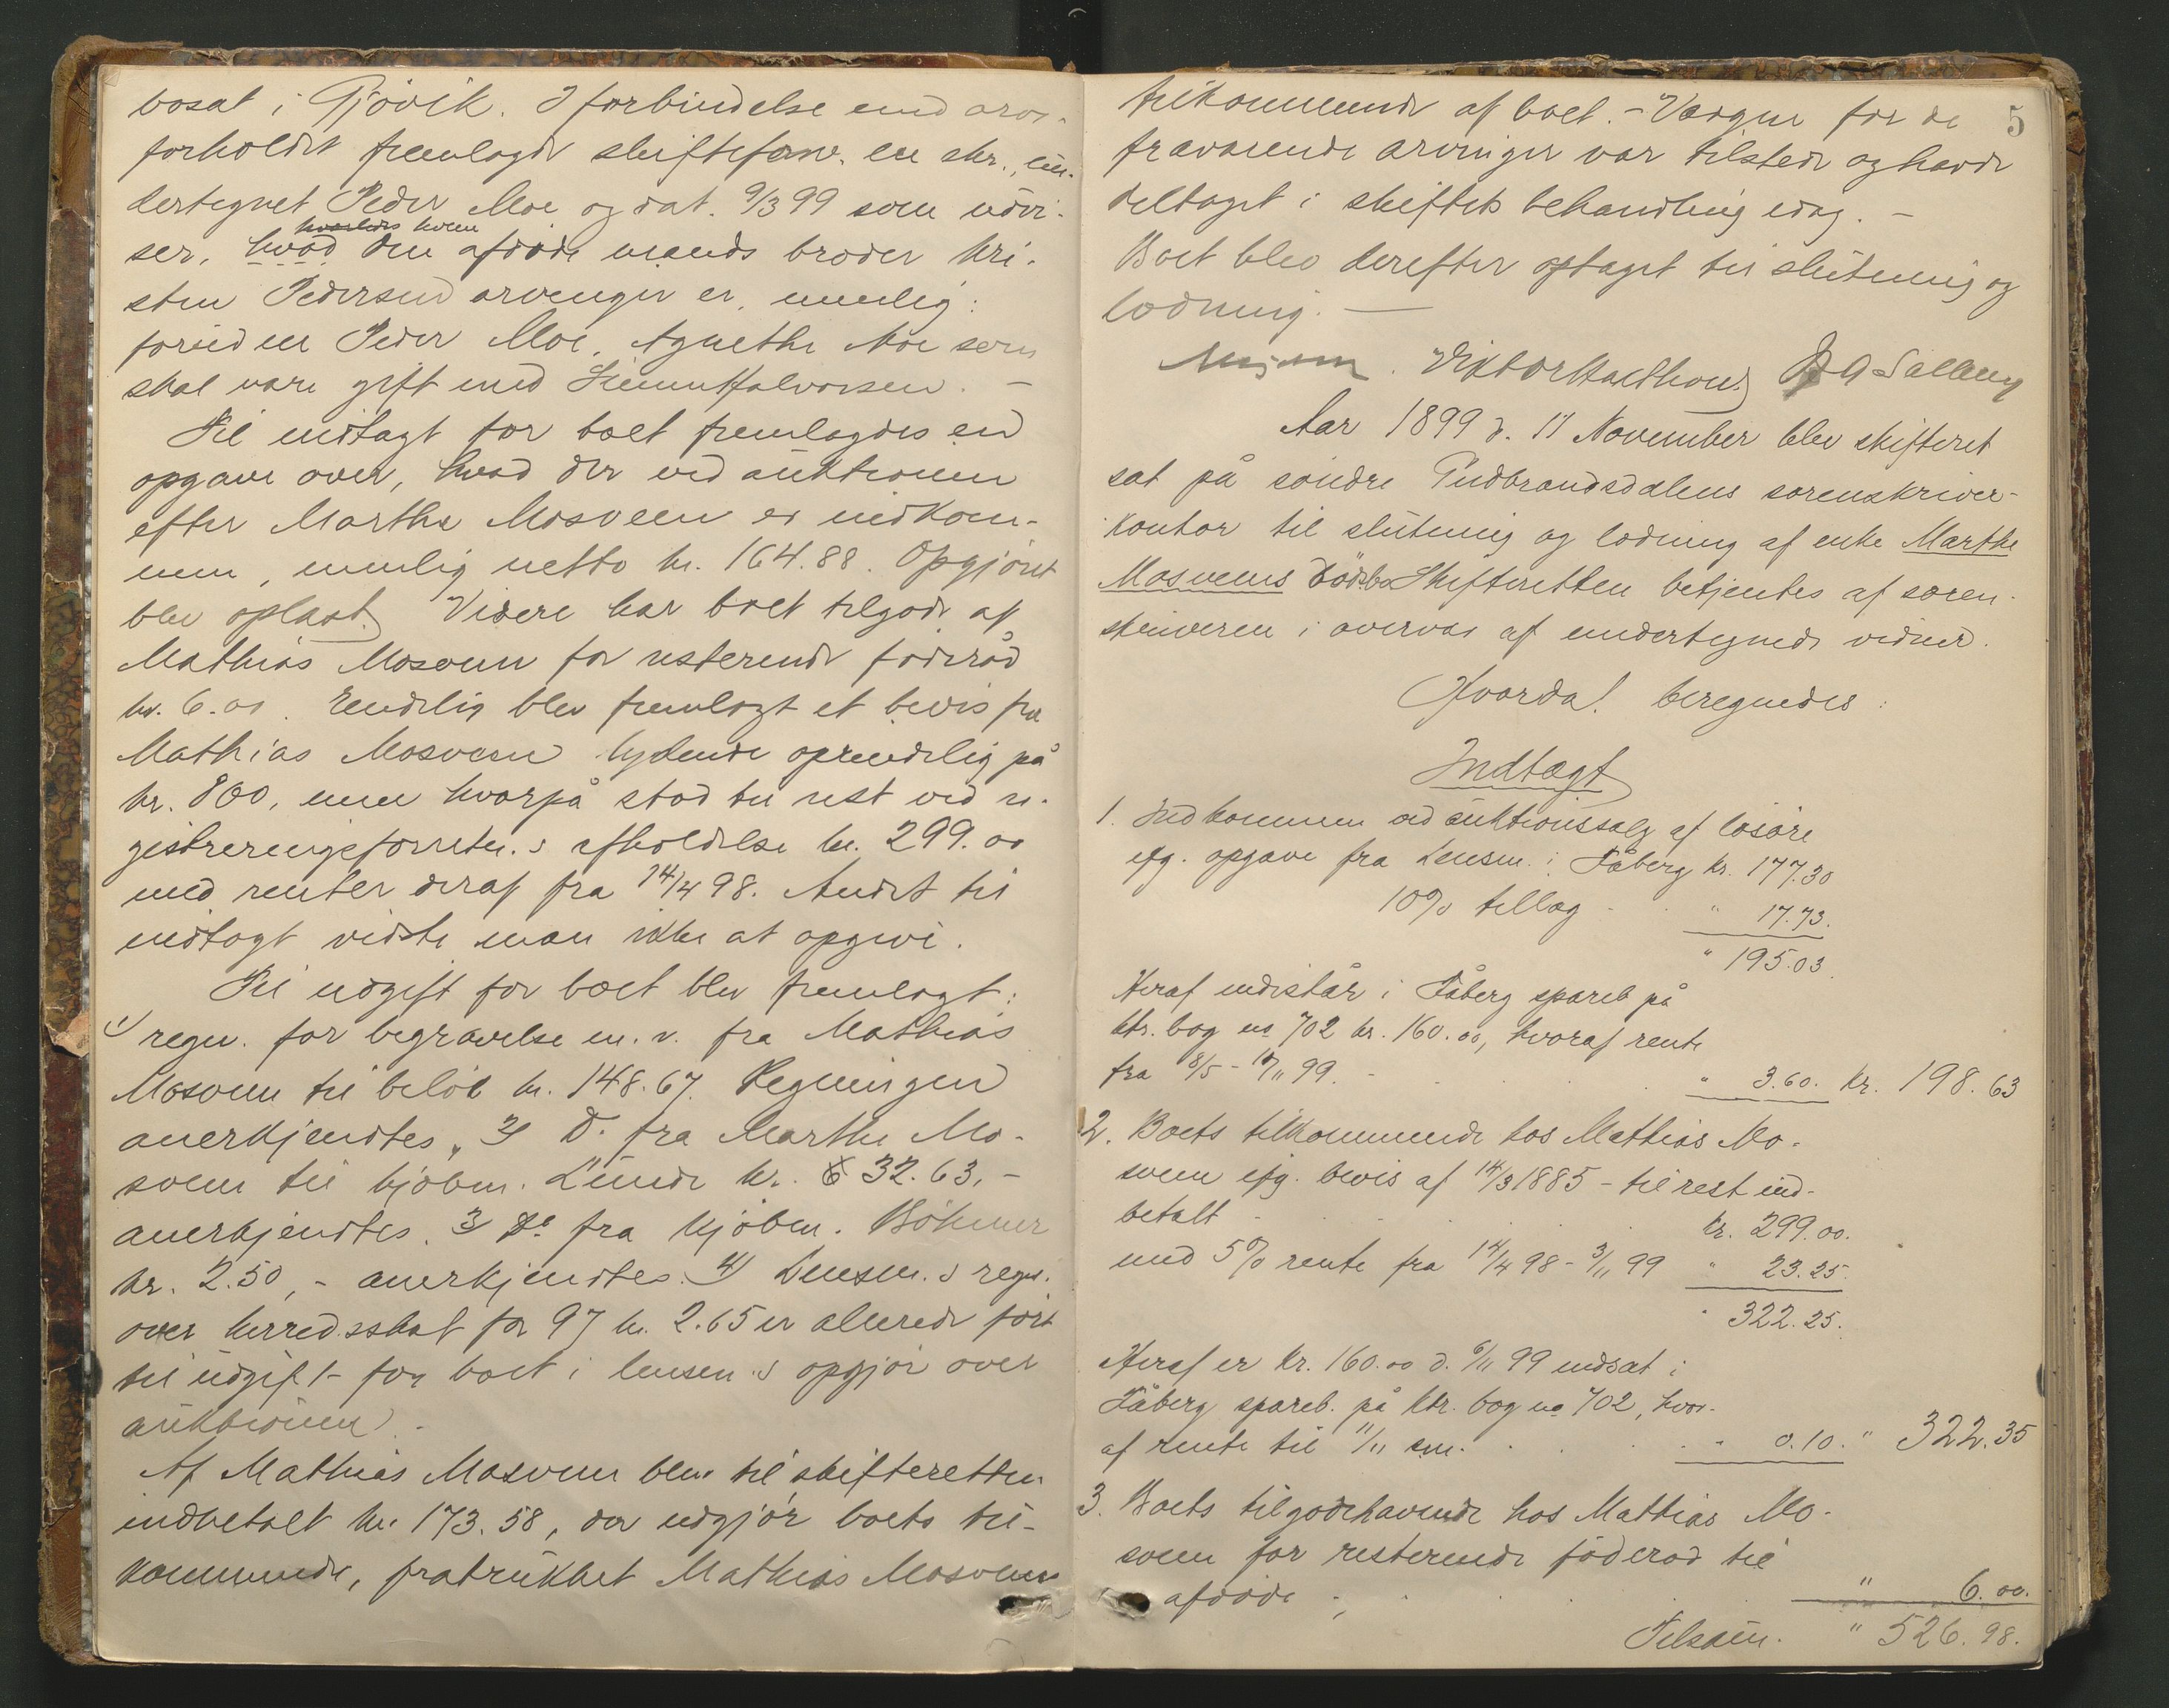 bosat i Gjövik. I forbindelse med arve-
forholdet fremlagde skifteforv. en skr., un-
dertegnet Peder Moe og dat. 9/3 99 som udvi-
hvorledes hvem
ser, hvad den afdöde mands broder Kri-
sten Pedersens arvinger er, nemlig:
foruden Peder Moe, Agnethe Moe som
skal være gift med Simen Halvorsen. –
Til indtægt for boet fremlagdes en
opgave over, hvad der ved auktionen
efter Marthe Mosveen er indkom-
men, nemlig netto kr. 164.88. Opgjöret
blev oplæst. Videre har boet tilgode af
Mathias Mosveen for resterende föderåd
kr. 6.00. Endelig blev fremlagt et bevis fra
Mathias Mosveen lydende oprindelig på
kr. 800, men hvorpå stod til rest ved re-
gistreringsforretn.s afholdelse kr. 299.00
med renter deraf fra 14/4 98. Andet til
indtægt vidste man ikke at opgive.
Til udgift for boet blev fremlagt:
1) regn. for begravelse m. v. fra Mathias
Mosveen til belöb kr. 148.67. Regningen
anerkjendtes, 2) Do. fra Marthe Mo-
sveen til kjöbm. Lunde kr. 32.63. –
anerkjendtes. 3) Do fra kjöbm. Böhmer
kr. 2.50, – anerkjendtes. 4) Lensm.s regn.
over herredsskat for 97 kr. 2.65 er allerede fört
til udgift for boet i lensm.s opgjör over
auktionen. –
Af Mathias Mosveen blev til skifteretten
indbetalt kr. 173.58, der udgjör boets til-
kommende, fratrukket Mathias Mosveens
5
tilkommende af boet. – Værgen for de
fraværende arvinger var tilstede og havde
deltaget i skiftets behandling idag. –
Boet blev derefter optaget til slutning og
lodning. –
Aar 1899 d. 11 November blev skifteret
sat på söndre Gudbrandsdalens sorenskriver-
kontor til slutning og lodning af enke Marthe
Mosveens dödsbo. Skifteretten betjentes af soren-
skriveren i overvær af undertegnede vidner.
Hvorda! beregnedes:
Indtægt
1. Indkommen ved auktionssalg af lösöre
efg. opgave fra Lensm. i Fåberg kr. 177.30
10% tillæg - " 17.73.
" 195.03.
Heraf indestår i Fåberg spareb på
ktr. bog no 702 kr. 160.00, hvoraf rente
fra 18/5 - 11/11 99. - " 3.60. kr. 198.63
2. Boets tilkommende hos Mathias Mo-
sveen efg. bevis af 14/3 1885 – til rest ind-
betalt kr. 299.00.
med 5% rente fra 14/4 98 - 3/11 99 " 23.25.
" 322.25.
Heraf er kr. 160.00 d. 6/11 99 indsat i
Fåberg spareb. på ktr. bog no 702, hvor-
af rente til 11/11 s.m. " 0.10. " 322.35
3. Boets tilgodehavende hos Mathias Mo-
sveen for resterende föderåd til
afdöde - " 6.00.
Tilsam. " 526.98.